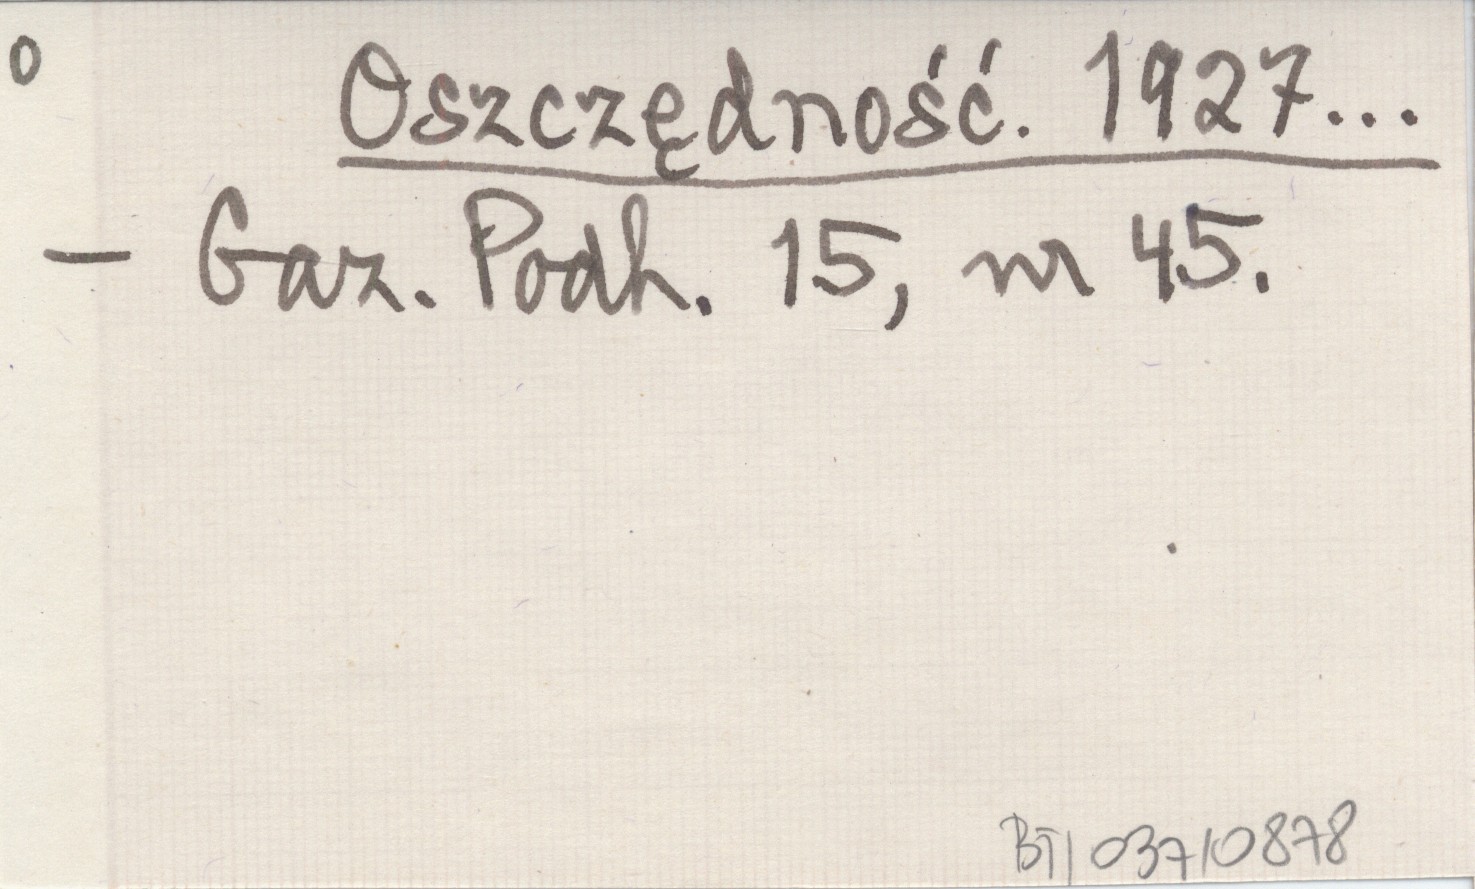 o
Oszczędność. 1927...
— Gaz. Podh. 15, nr 45.
BT/037/0878